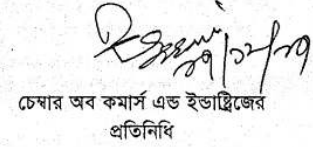 চেম্বার অব কমার্স এন্ড ইন্ডাষ্ট্রিজের
প্রতিনিধি